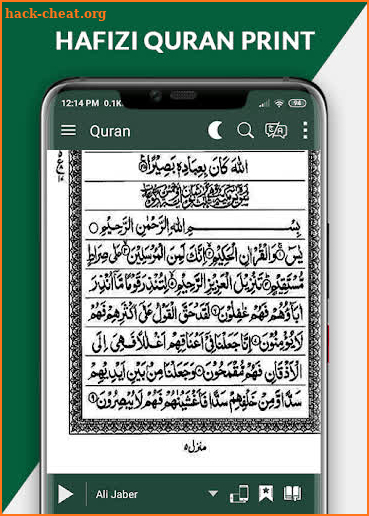 hack-cheat.org
HAFIZI QURAN PRINT
12:14 PM 0.1K
94
Quran
اللّٰهَ كَانَ بِعِبَادِهٖ بَصِیْرًا
بِسْمِ اللّٰهِ الرَّحْمٰنِ الرَّحِیْمِ
یٰسٓ وَالْقُرْاٰنِ الْحَكِیْمِ اِنَّكَ لَمِنَ الْمُرْسَلِیْنَ عَلٰی صِرَاطٍ
مُّسْتَقِیْمٍ تَنْزِیْلَ الْعَزِیْزِ الرَّحِیْمِ لِتُنْذِرَ قَوْمًا مَّاۤ اُنْذِرَ
اٰبَآؤُهُمْ فَهُمْ غٰفِلُوْنَ لَقَدْ حَقَّ الْقَوْلُ عَلٰۤی اَكْثَرِهِمْ فَهُمْ
لَا یُؤْمِنُوْنَ اِنَّا جَعَلْنَا فِیْۤ اَعْنَاقِهِمْ اَغْلٰلًا فَهِیَ اِلَی
الْاَذْقَانِ فَهُمْ مُّقْمَحُوْنَ وَجَعَلْنَا مِنْۢ بَیْنِ اَیْدِیْهِمْ
سَدًّا وَّمِنْ خَلْفِهِمْ سَدًّا فَاَغْشَیْنٰهُمْ فَهُمْ لَا یُبْصِرُوْنَ ۹
منزل ۵
Ali Jaber